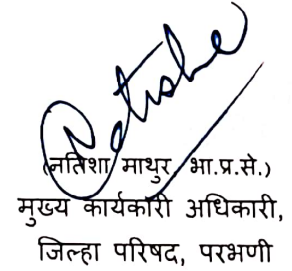 (नतिशा माथुर, भा.प्र.से.)
मुख्य कार्यकारी अधिकारी,
जिल्हा परिषद, परभणी